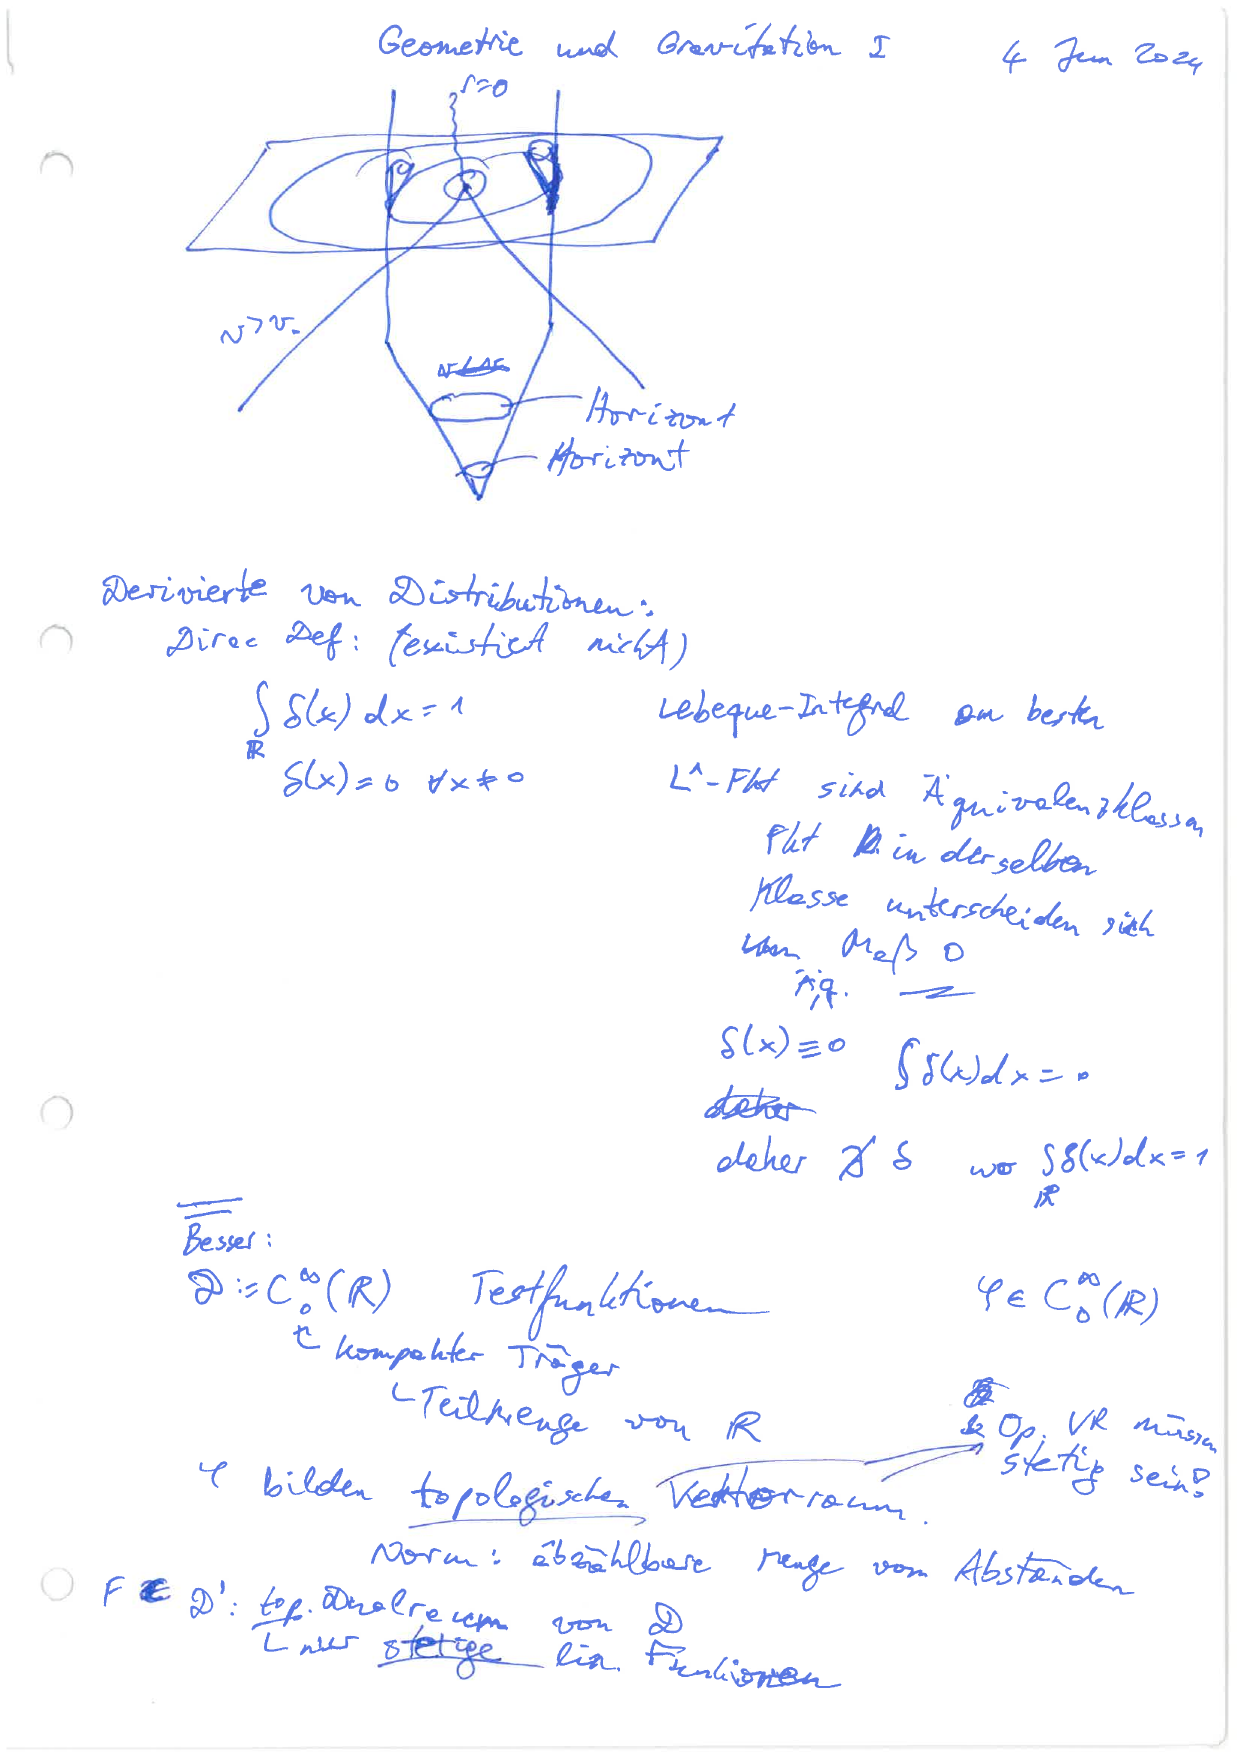 Geometrie und Gravitation I
4 Jun 2024
r=0
v>v-
Horizont
Horizont
Derivierte von Distributionen:
Dirac Def: (existiert nicht)
∫ δ(x) dx = 1
ℝ
Lebeque-Integral am besten
δ(x) = 0 ∀x ≠ 0
L^1-Fkt sind Äquivalenzklassen
Fkt in derselben
Klasse unterscheiden sich
um Maß 0
Äq.
δ(x) ≡ 0 ∫δ(x)dx = 0
daher
daher ∄ δ wo ∫δ(x)dx = 1
ℝ
Besser:
D := C_0^∞(ℝ) Testfunktionen φ ∈ C_0^∞(ℝ)
kompakter Träger
Teilmenge von ℝ
Op. VR müssen
stetig sein!
φ bilden topologischen Vektorraum.
Norm: abzählbare Menge von Abständen
F ∈ D': top. Dualraum von D
nur stetige lin. Funktionen